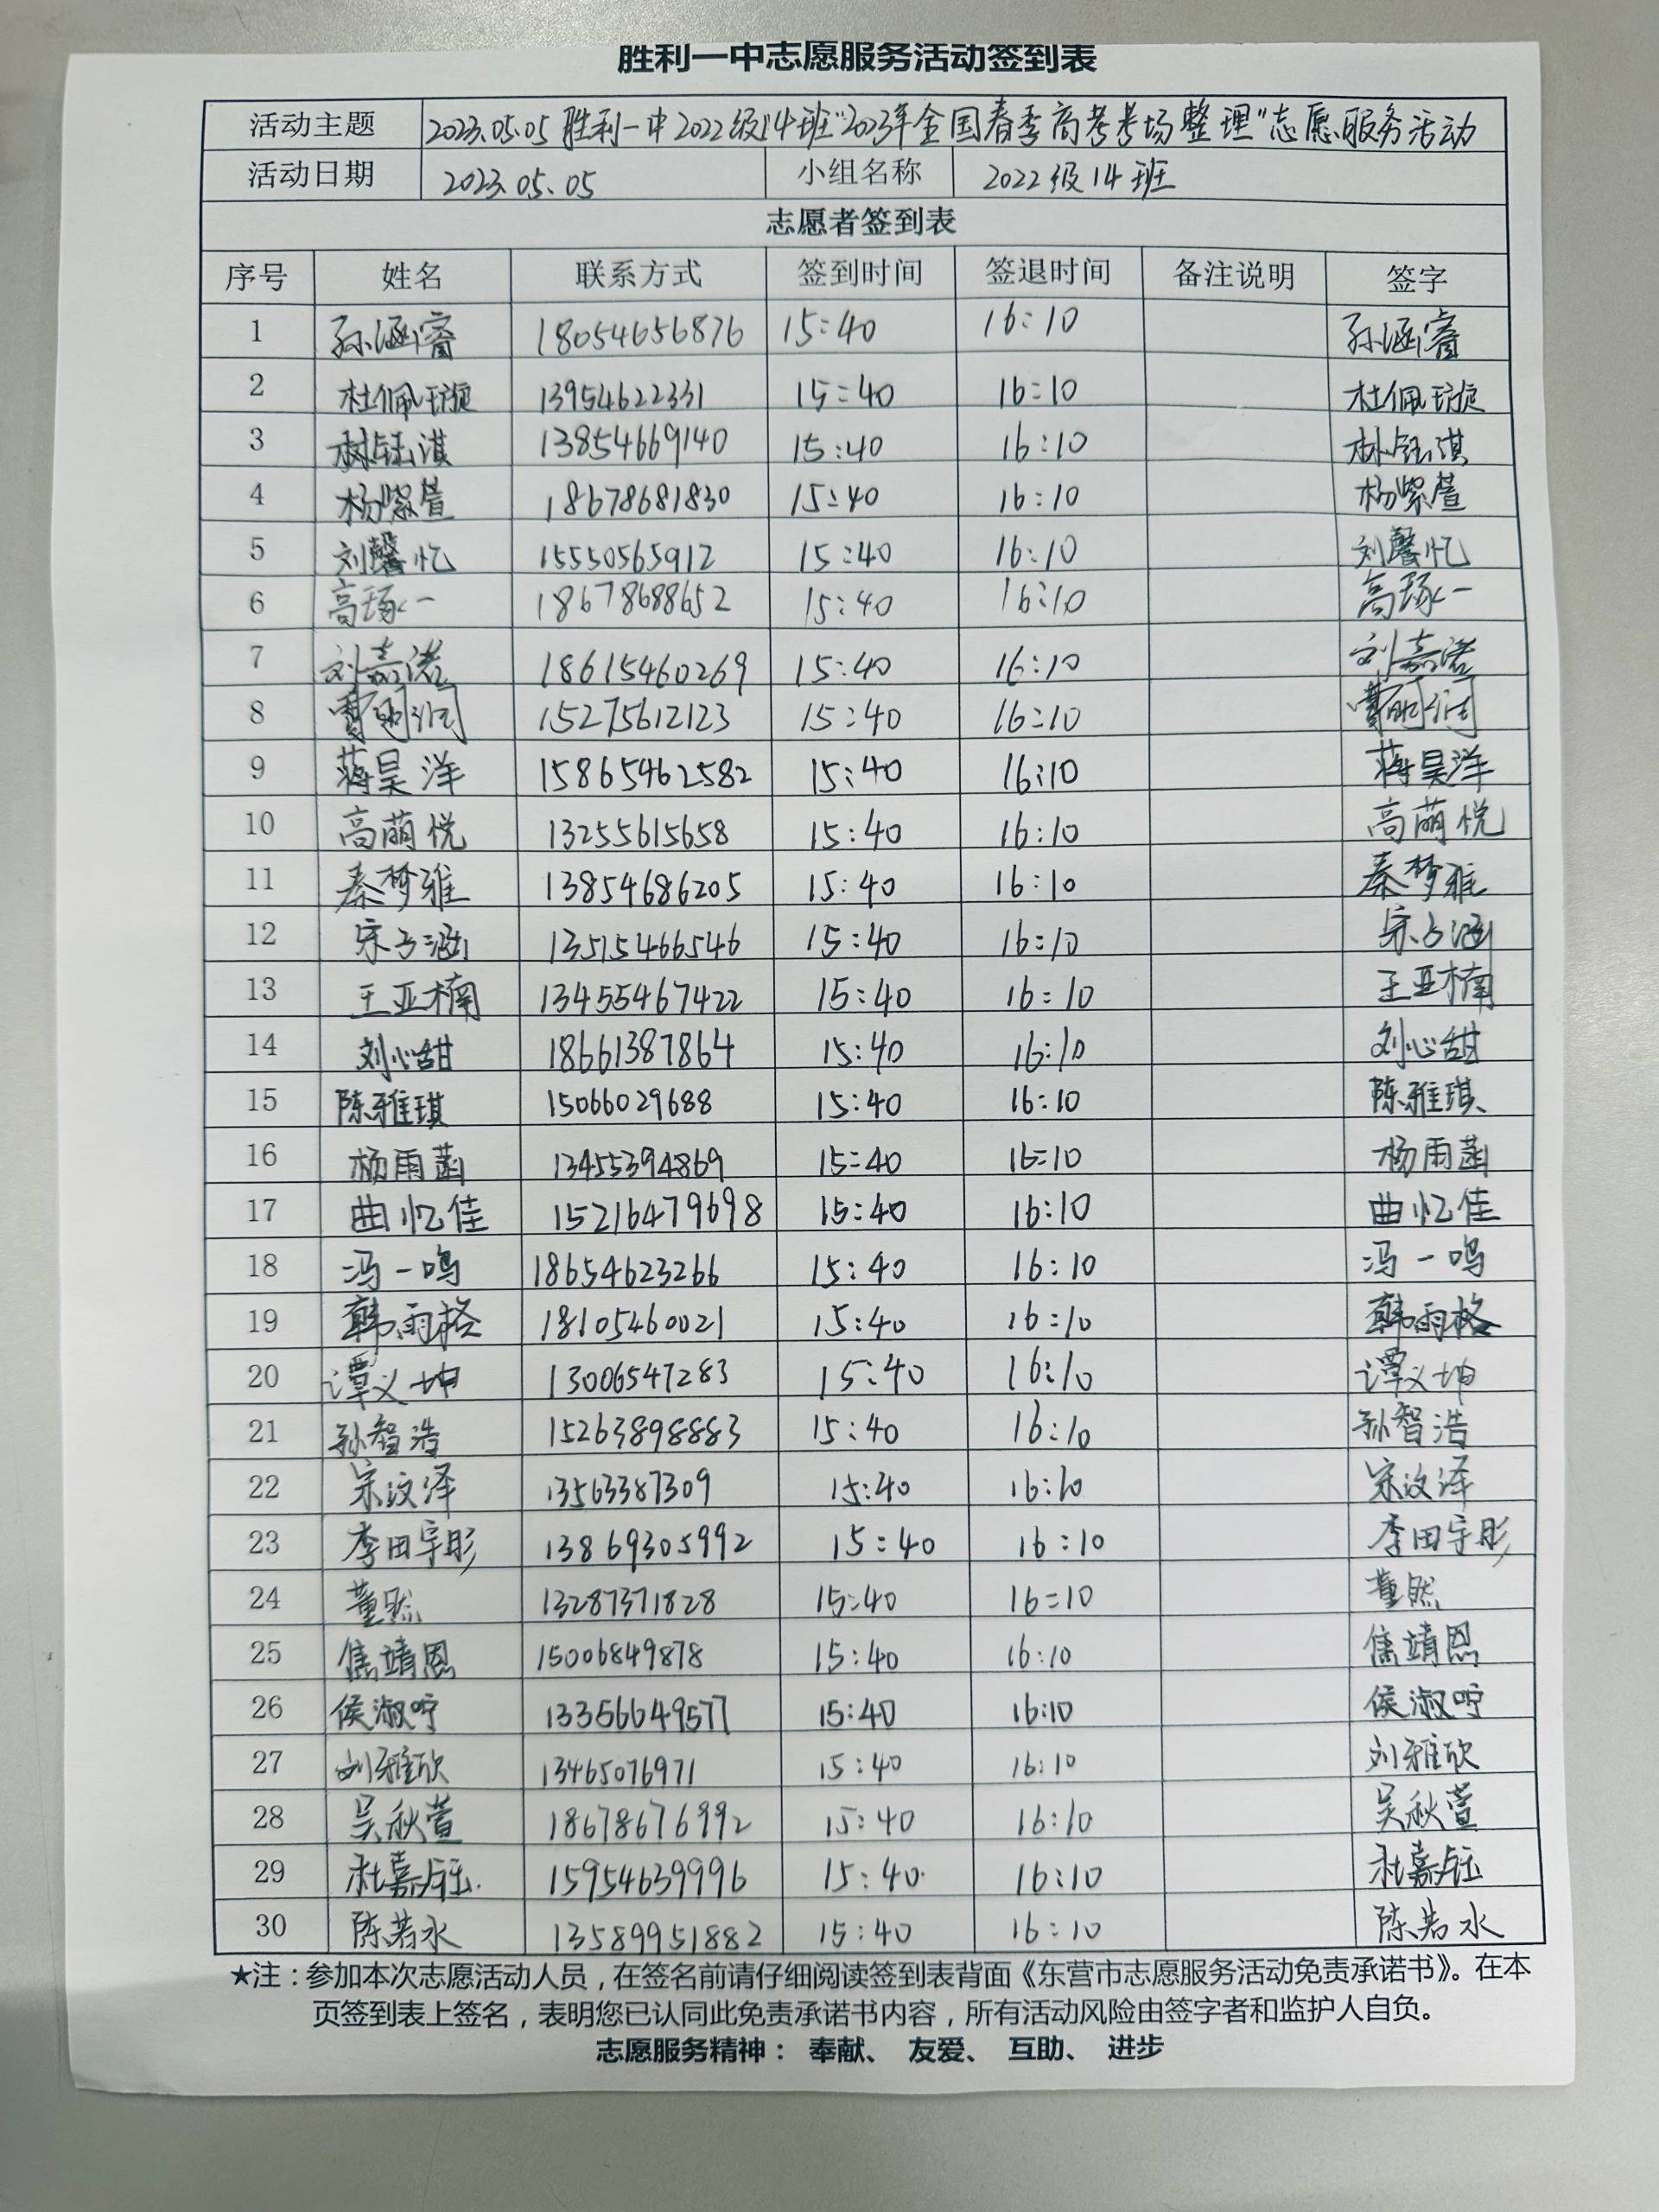 胜利一中志愿服务活动签到表
活动主题 2023.05.05胜利一中2022级14班"2023年全国春季高考考场整理"志愿服务活动
活动日期 2023.05.05 小组名称 2022级14班
志愿者签到表
序号 姓名 联系方式 签到时间 签退时间 备注说明 签字
1 孙涵睿 18054656876 15:40 16:10 孙涵睿
2 杜佩璇 13954622331 15:40 16:10 杜佩璇
3 林钰淇 13854669140 15:40 16:10 林钰淇
4 杨紫萱 18678681830 15:40 16:10 杨紫萱
5 刘馨忆 15550565912 15:40 16:10 刘馨忆
6 高琢一 18678688652 15:40 16:10 高琢一
7 刘嘉诺 18615460269 15:40 16:10 刘嘉诺
8 15275612123 15:40 16:10
9 蒋昊洋 15865462582 15:40 16:10 蒋昊洋
10 高萌悦 13255615658 15:40 16:10 高萌悦
11 秦梦雅 13854686205 15:40 16:10 秦梦雅
12 宋子涵 13515466546 15:40 16:10 宋子涵
13 王亚楠 13455467422 15:40 16:10 王亚楠
14 刘心甜 18661387864 15:40 16:10 刘心甜
15 陈雅琪 15066029688 15:40 16:10 陈雅琪
16 杨雨菡 13455394869 15:40 16:10 杨雨菡
17 曲忆佳 15216479698 15:40 16:10 曲忆佳
18 冯一鸣 18654623266 15:40 16:10 冯一鸣
19 韩雨格 18105460021 15:40 16:10 韩雨格
20 谭义坤 13006547283 15:40 16:10 谭义坤
21 孙智浩 15263898883 15:40 16:10 孙智浩
22 宋汶泽 13563387309 15:40 16:10 宋汶泽
23 李田宇彤 13869305992 15:40 16:10 李田宇彤
24 董然 13287371828 15:40 16:10 董然
25 焦靖恩 15006849878 15:40 16:10 焦靖恩
26 侯淑咛 13356649577 15:40 16:10 侯淑咛
27 刘雅欣 13465076971 15:40 16:10 刘雅欣
28 吴秋萱 18678676992 15:40 16:10 吴秋萱
29 杜嘉钰 15954639996 15:40 16:10 杜嘉钰
30 陈若水 13589951882 15:40 16:10 陈若水
★注：参加本次志愿活动人员，在签名前请仔细阅读签到表背面《东营市志愿服务活动免责承诺书》。在本
页签到表上签名，表明您已认同此免责承诺书内容，所有活动风险由签字者和监护人自负。
志愿服务精神： 奉献、 友爱、 互助、 进步